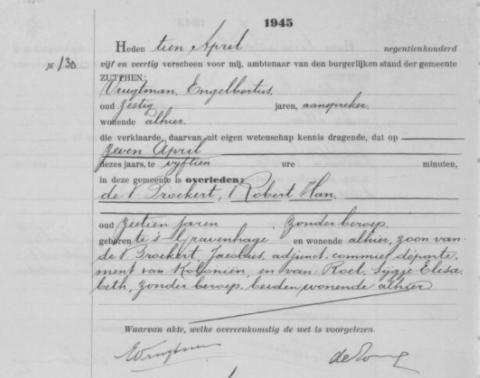 1945
Heden tien April negentienhonderd
№ 130 vijf en veertig verscheen voor mij, ambtenaar van den burgerlijken stand der gemeente
ZUTPHEN:
Vrugtman, Engelbertus,
oud zestig jaren, aanspreker,
wonende alhier,
die verklaarde, daarvan uit eigen wetenschap kennis dragende, dat op
zeven April
dezes jaars, te vijftien ure minuten,
in deze gemeente is overleden:
de Brockert, Robert Han,
oud zestien jaren, zonder beroep,
geboren te 's Gravenhage en wonende alhier, zoon van
de Brockert, Jacobus, adjunct commies departe
ment van Koloniën, en van Roet, Sijtje Elisa
beth, zonder beroep, beiden wonende alhier
Waarvan akte, welke overeenkomstig de wet is voorgelezen.
EVrugtman